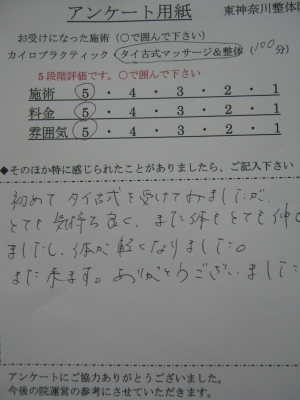 アンケート用紙
東神奈川整体院
お受けになった施術 (○で囲んで下さい)
カイロプラクティック・タイ古式マッサージ&整体 (100分)
5段階評価です。○で囲んで下さい。
施術 5・4・3・2・1
料金 5・4・3・2・1
雰囲気 5・4・3・2・1
◆そのほか特に感じられたことがありましたら、ご記入下さい
初めてタイ古式を受けてみましたが、
とても気持ち良く、また体もとても伸
ましたし、体が軽くなりました。
また来ます。ありがとうございました
アンケートにご協力ありがとうございました。
今後の院運営の参考にさせていただきます。